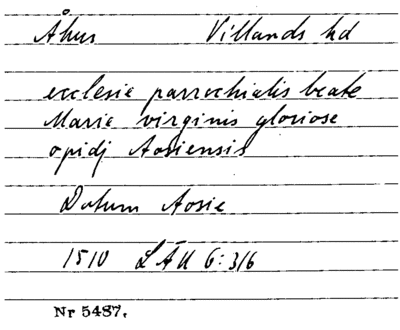 Åhus Villands hd
ecclesie parrochialis beate
Marie virginis gloriose
opidj Aosiensis
Datum Aosie
1510 LÄU 6:316
Nr 5487.